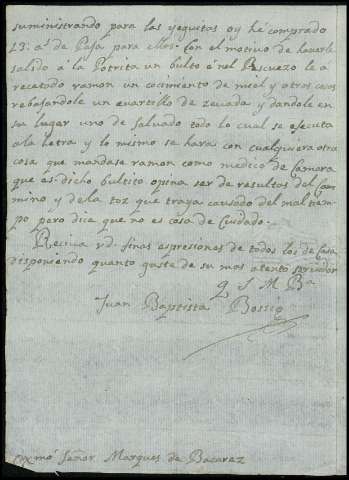 suministrando para las yeguitas oy hé comprado
13: a.s de Paja para ellos. Con el motivo de haverle
salido á la Potrita un bulto énel Pescuezo le a
recetado ramon un cocimiento de miel y otras cosas
rebajandole un quartillo de zevada y dandole en
su lugar uno de salvado todo lo cual se ejecuta
ala letra y lo mismo se hara con cualquiera otra
cosa que mandase ramon como medico de Camara
que és. dicho bultito opina ser de resultas del Ca-
mino y dela tos que traya causado del mal tiem-
po pero dice que no es cosa de Cuidado.
Reciva vd. finas expresiones de todos los de Casa
disponiendo quanto guste de su mas atento servidor
Q S M Ba
Juan Baptista Bossio
Exmo Señor Marques de Bacarez